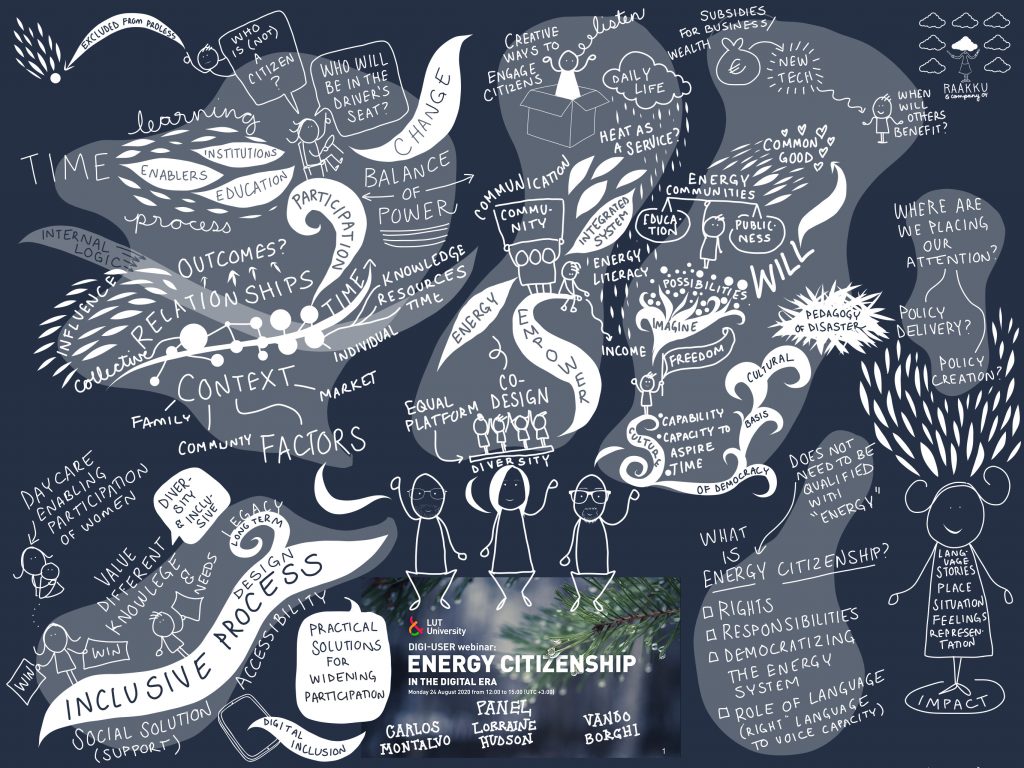 EXCLUDED FROM PROCESS
WHO
IS (NOT)
A
CITIZEN
?
WHO WILL
BE IN THE
DRIVER'S
SEAT?
CHANGE
learning
TIME
INSTITUTIONS
ENABLERS
EDUCATION
process
PARTICIPATION
BALANCE
OF
POWER
INTERNAL
LOGIC
INFLUENCE
OUTCOMES?
RELATIONSHIPS
TIME
KNOWLEDGE
RESOURCES
TIME
Collective
INDIVIDUAL
CONTEXT
MARKET
FAMILY
COMMUNITY
FACTORS
CREATIVE
WAYS TO
ENGAGE
CITIZENS
listen
DAILY
LIFE
HEAT AS
A SERVICE?
COMMUNICATION
COMMU-
NITY
INTEGRATED
SYSTEM
ENERGY
LITERACY
INCOME
ENERGY
EMPOWER
CO-
DESIGN
EQUAL
PLATFORM
DIVERSITY
SUBSIDIES
FOR BUSINESS/
WEALTH
€
NEW
TECH
WHEN
WILL
OTHERS
BENEFIT?
RAAKKU
& company oy
COMMON
GOOD
ENERGY
COMMUNITIES
EDUCA-
TION
PUBLIC-
NESS
WILL
POSSIBILITIES
IMAGINE
FREEDOM
PEDAGOGY
OF DISASTER
CULTURE
•CAPABILITY
•CAPACITY TO
ASPIRE
•TIME
CULTURAL
BASIS
OF DEMOCRACY
WHERE ARE
WE PLACING
OUR
ATTENTION?
POLICY
DELIVERY?
POLICY
CREATION?
DAYCARE
ENABLING
PARTICIPATION
OF WOMEN
DIVER-
SITY
& INCLU-
SIVE
LEGACY
LONG TERM
VALUE
DIFFERENT
KNOWLEGE
&
NEEDS
DESIGN
WIN
WIN
INCLUSIVE PROCESS
ACCESSIBILITY
SOCIAL SOLUTION
(SUPPORT)
DIGITAL
INCLUSION
PRACTICAL
SOLUTIONS
FOR
WIDENING
PARTICIPATION
LUT
University
DIGI-USER webinar:
ENERGY CITIZENSHIP
IN THE DIGITAL ERA
Monday 24 August 2020 from 12:00 to 15:00 (UTC +3:00)
PANEL
CARLOS
MONTALVO
LORRAINE
HUDSON
VANDO
BORGHI
1
DOES NOT
NEED TO BE
QUALIFIED
WITH
"ENERGY"
WHAT
IS
ENERGY CITIZENSHIP?
RIGHTS
RESPONSIBILITIES
DEMOCRATIZING
THE ENERGY
SYSTEM
ROLE OF LANGUAGE
("RIGHT" LANGUAGE
TO VOICE CAPACITY)
LANG-
UAGE
STORIES
PLACE
SITUATION
FEELINGS
REPRESEN-
TATION
IMPACT